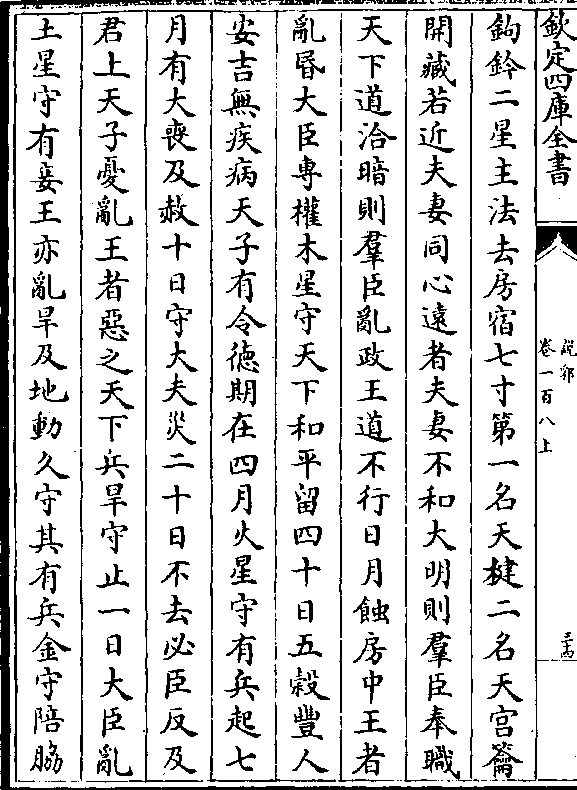 欽定四庫全書
說郛
卷一百八上
三古
鉤鈐二星主法去房宿七寸第一名天楗二名天宫籥
開藏若近夫妻同心遠者夫妻不和大明則羣臣奉職
天下道洽暗則羣臣亂政王道不行日月蝕房中王者
亂昏大臣專權木星守天下和平留四十日五穀豐人
安吉無疾病天子有令徳期在四月火星守有兵起七
月有大喪及赦十日守大夫災二十日不去必臣反及
君上天子憂亂王者惡之天下兵旱守止一日大臣亂
土星守有妾王亦亂旱及地動久守其有兵金守陪脇